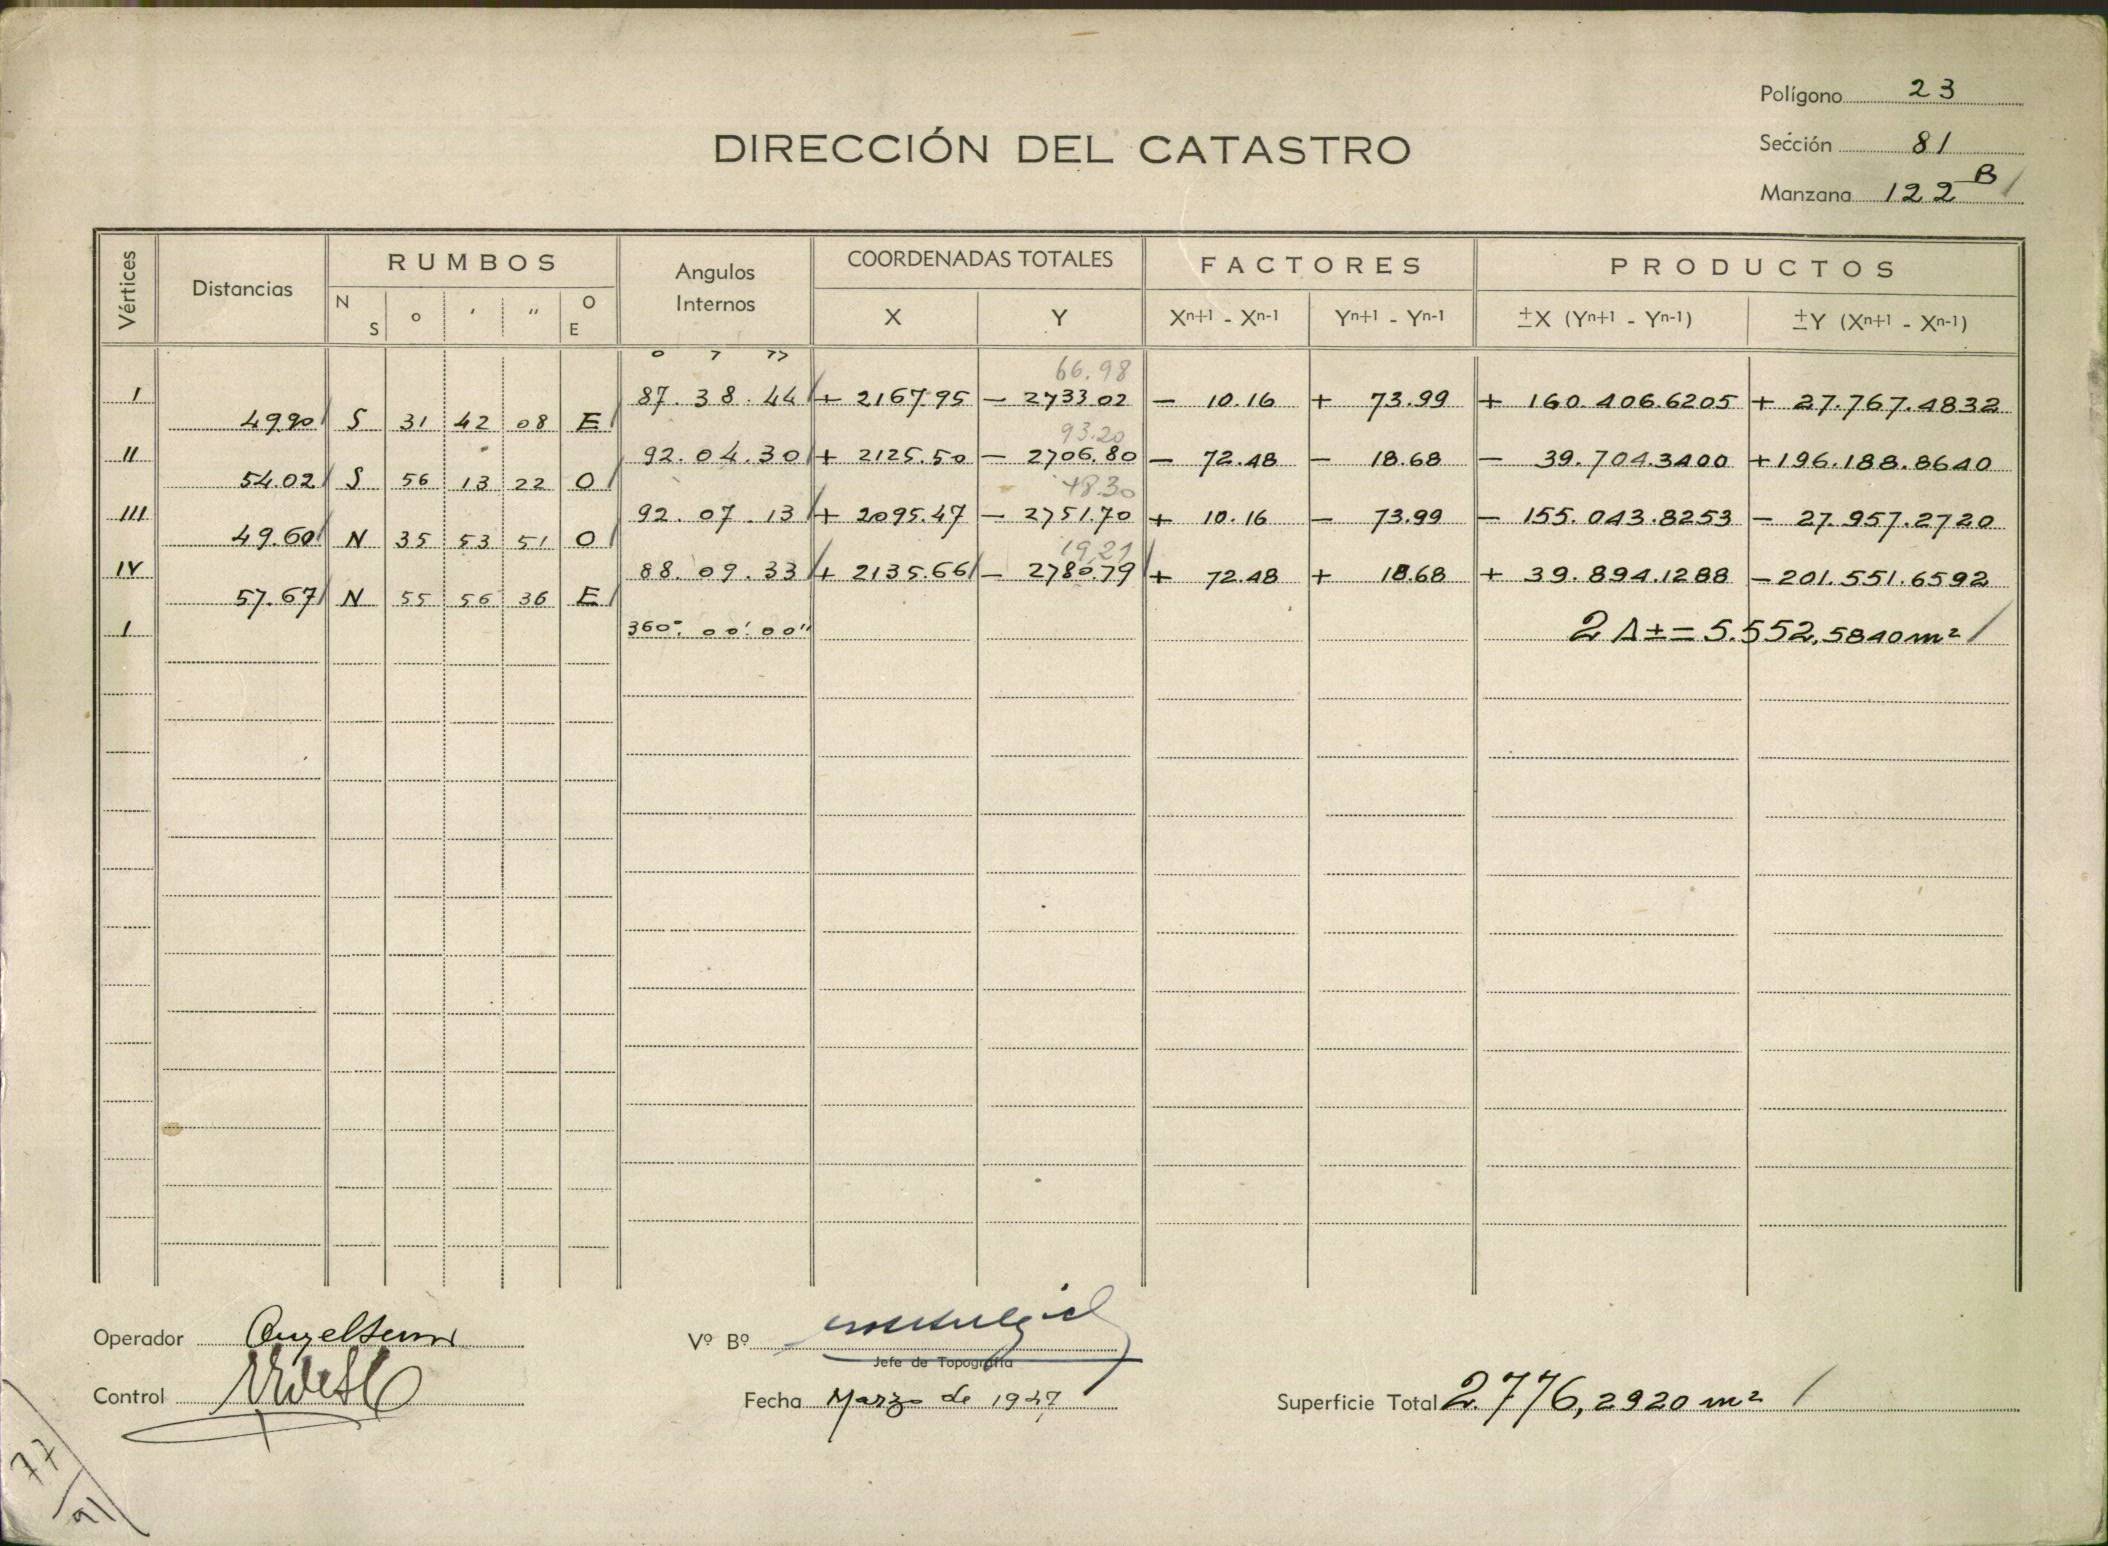 Polígono 23
DIRECCIÓN DEL CATASTRO
Sección 81
Manzana 122 B
Vértices Distancias RUMBOS Angulos Internos COORDENADAS TOTALES FACTORES PRODUCTOS
N S ° ' " O E X Y Xn+1 - Xn-1 Yn+1 - Yn-1 ±X (Yn+1 - Yn-1) ±Y (Xn+1 - Xn-1)
° ' "
66.98
I 87.38.44 + 2167.95 - 2733.02 - 10.16 + 73.99 + 160.406.6205 + 27.767.4832
49.90 S 31 42 08 E
93.20
II 92.04.30 + 2125.50 - 2706.80 - 72.48 - 18.68 - 39.704.3400 + 196.188.8640
54.02 S 56 13 22 O
48.30
III 92.07.13 + 2095.47 - 2751.70 + 10.16 - 73.99 - 155.043.8253 - 27.957.2720
49.60 N 35 53 51 O
19.21
IV 88.09.33 + 2135.66 - 2780.79 + 72.48 + 18.68 + 39.894.1288 - 201.551.6592
57.67 N 55 56 36 E
I 360°.00'.00" 2 Δ ± = 5.552,5840 m²
Operador
Vº Bº
Jefe de Topografía
Control
Fecha Marzo de 1947
Superficie Total 2.776,2920 m²
77
91